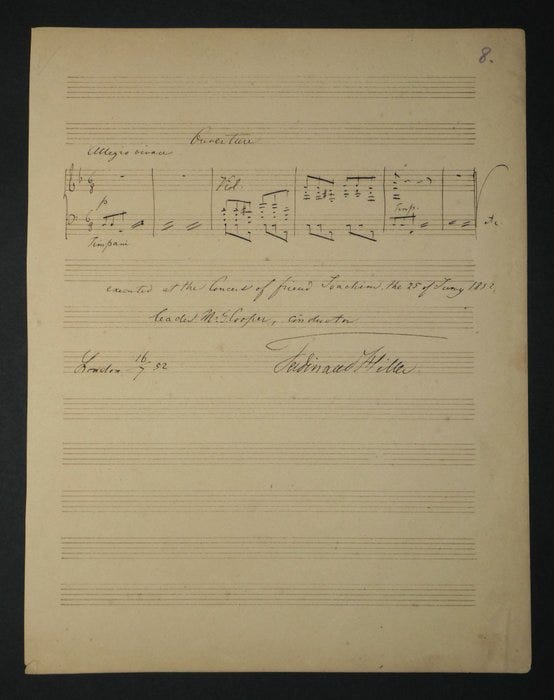 8.
Ouverture
Allegro vivace
6 8
p
Viol.
6 8
Timp.
Timpani
executed at the Concert of friend Joachim, the 25 of Juny 1852,
leader Mr. Cooper, conductor
London 16/7 52
Ferdinand Hiller.